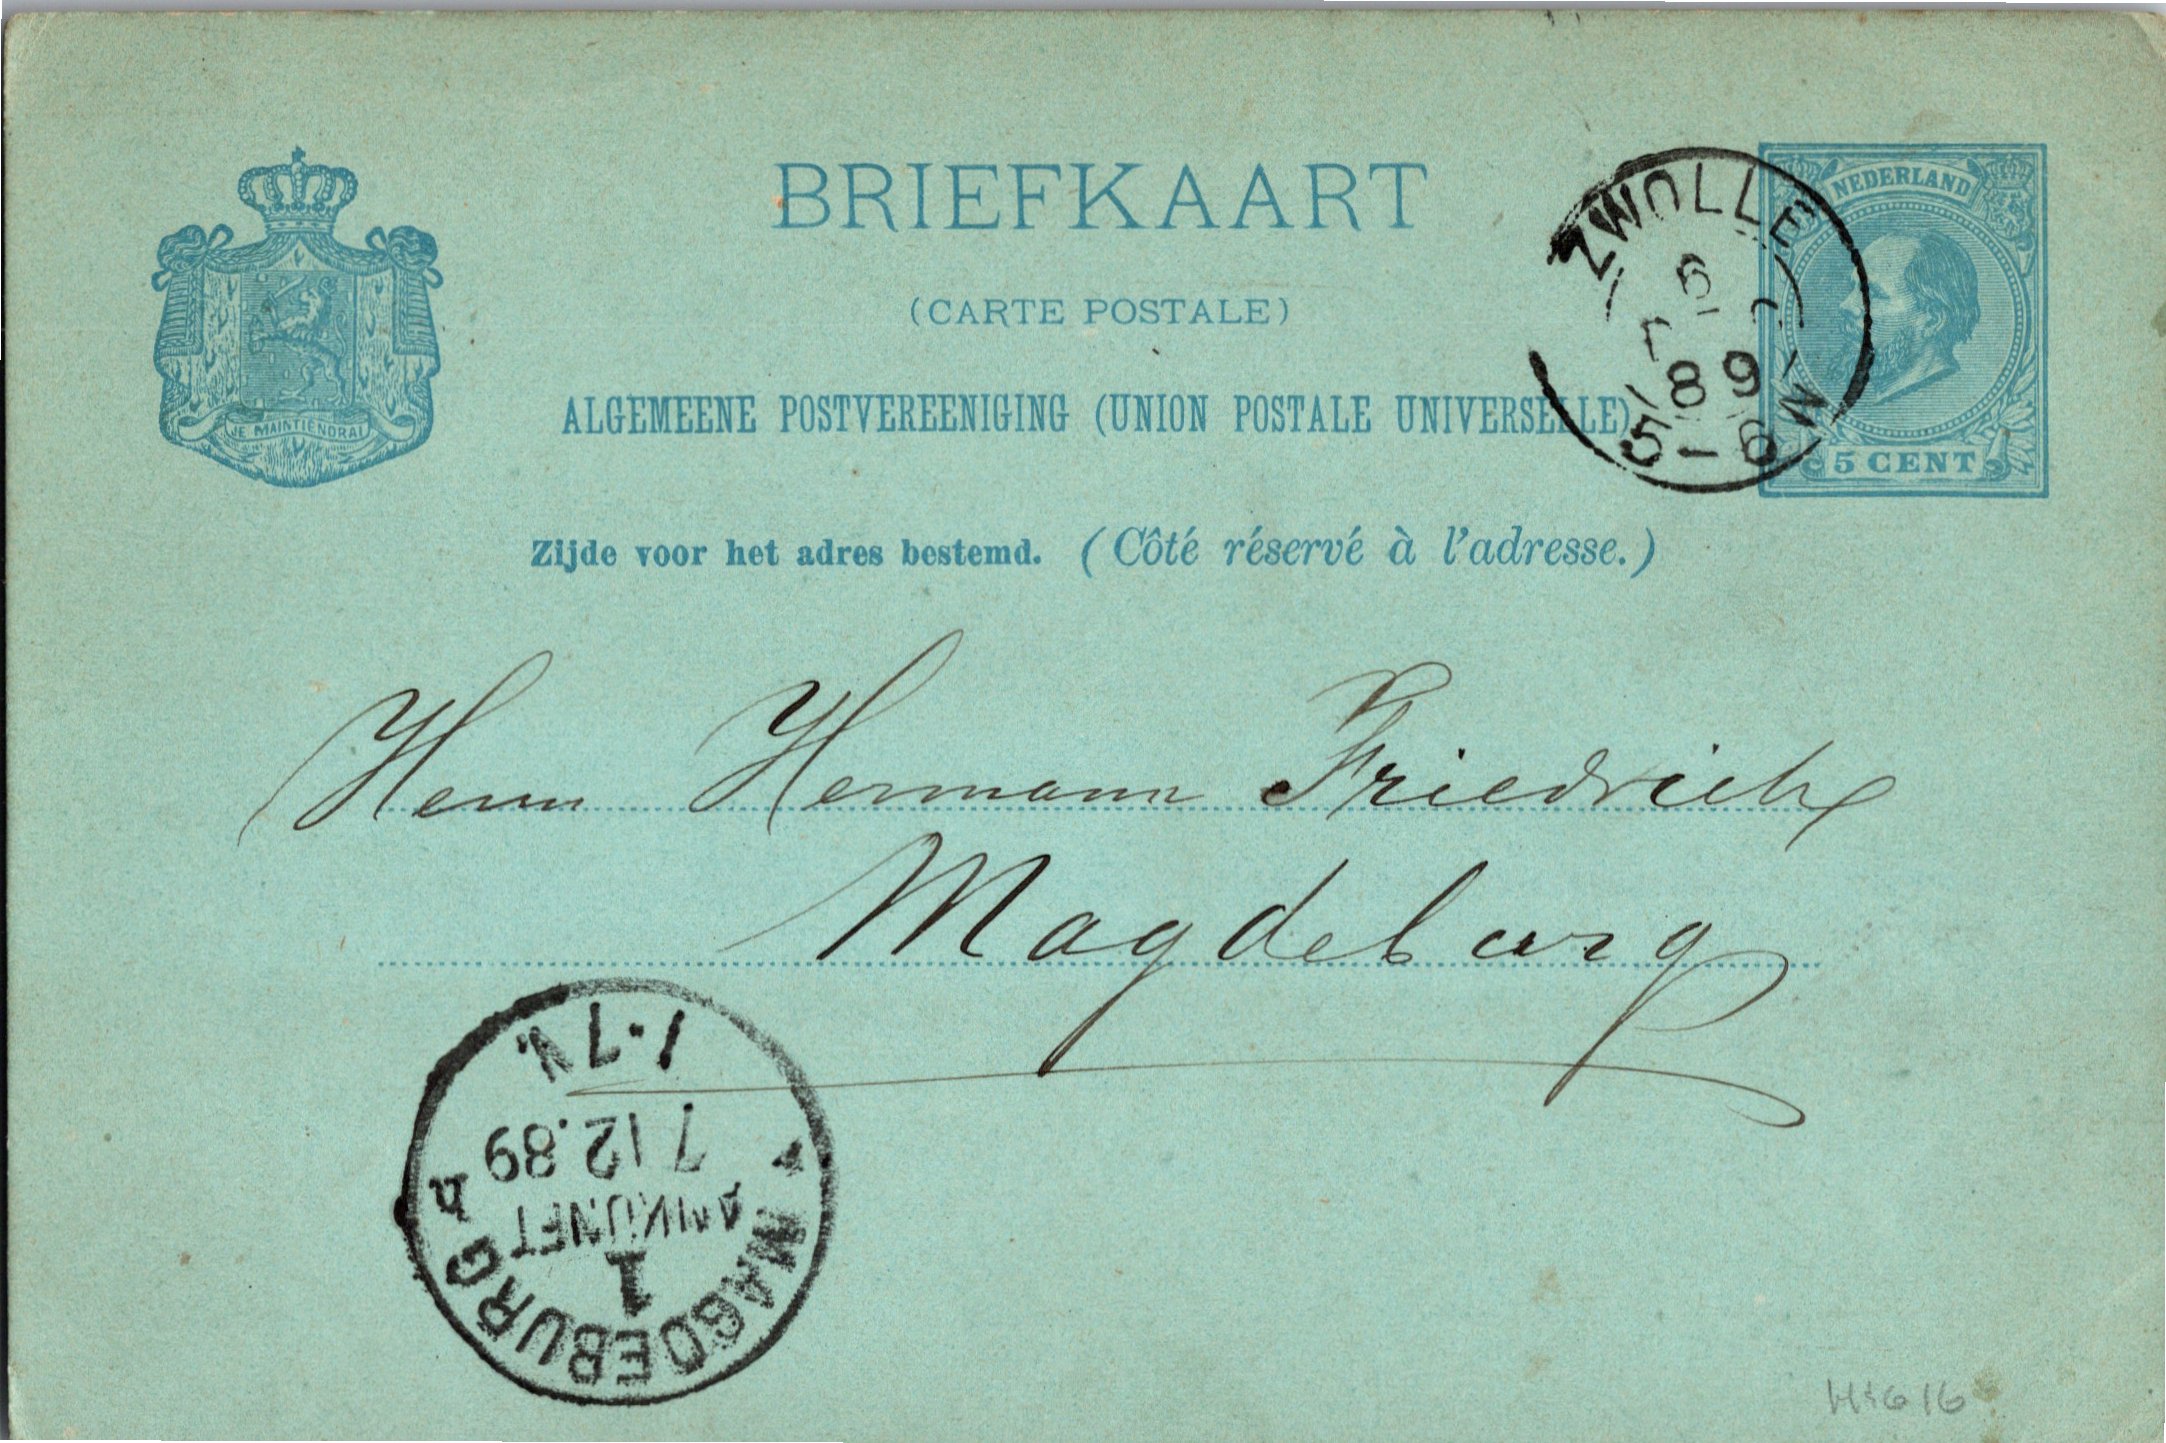 BRIEFKAART
(CARTE POSTALE)
ALGEMEENE POSTVEREENIGING (UNION POSTALE UNIVERSELLE)
Zijde voor het adres bestemd. (Côté réservé à l'adresse.)
JE MAINTIENDRAI
NEDERLAND
5 CENT
ZWOLLE
6
89
5-6
Herrn Hermann Friedrich
Magdeburg
MAGDEBURG
1
ANKUNFT
7 12.89
1-7N.